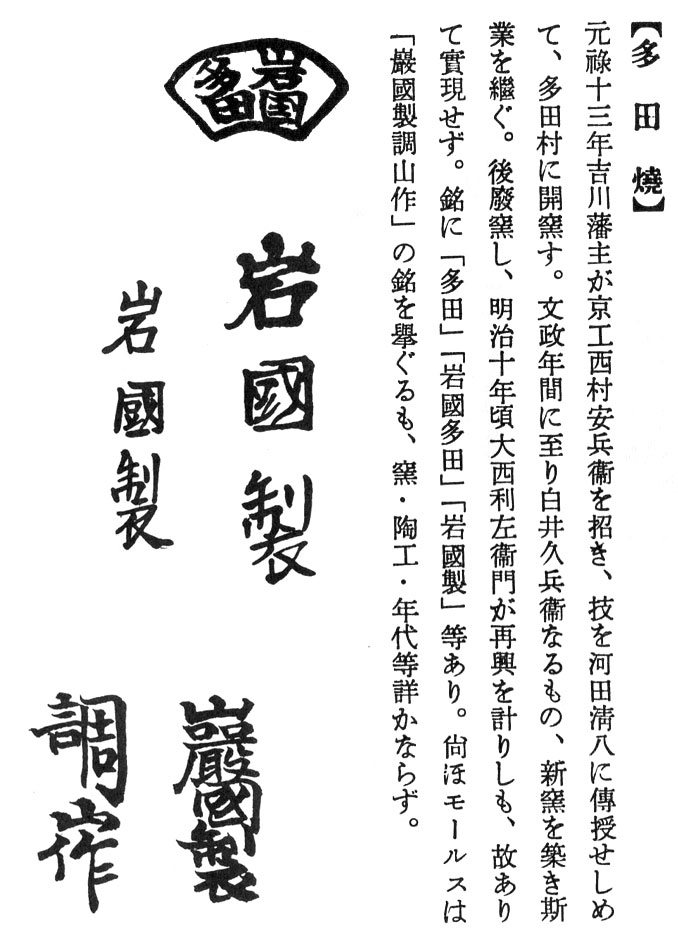 【多田燒】
元祿十三年吉川藩主が京工西村安兵衞を招き、技を河田淸八に傳授せしめ
て、多田村に開窯す。文政年間に至り白井久兵衞なるもの、新窯を築き斯
業を繼ぐ。後廢窯し、明治十年頃大西利左衞門が再興を計りしも、故あり
て實現せず。銘に「多田」「岩國多田」「岩國製」等あり。尙ほモールスは
「巖國製調山作」の銘を擧ぐるも、窯・陶工・年代等詳かならず。
岩国
多田
岩國製
岩國製
巖國製
調山作